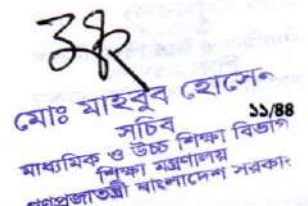 মোঃ মাহবুব হোসেন
১১/৪৪
সচিব
মাধ্যমিক ও উচ্চ শিক্ষা বিভাগ
শিক্ষা মন্ত্রণালয়
গণপ্রজাতন্ত্রী বাংলাদেশ সরকার